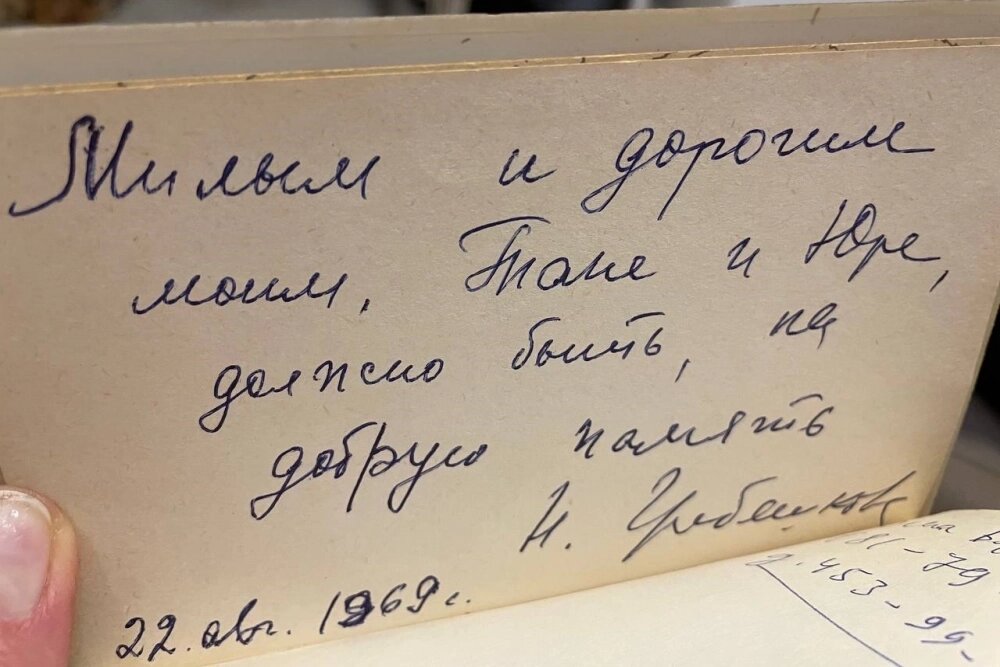 Милым и дорогим
моим, Тане и Юре,
должно быть, на
добрую память
Н. Гребешков
22. авг. 1969 г.
на
81-79
2.453-99-